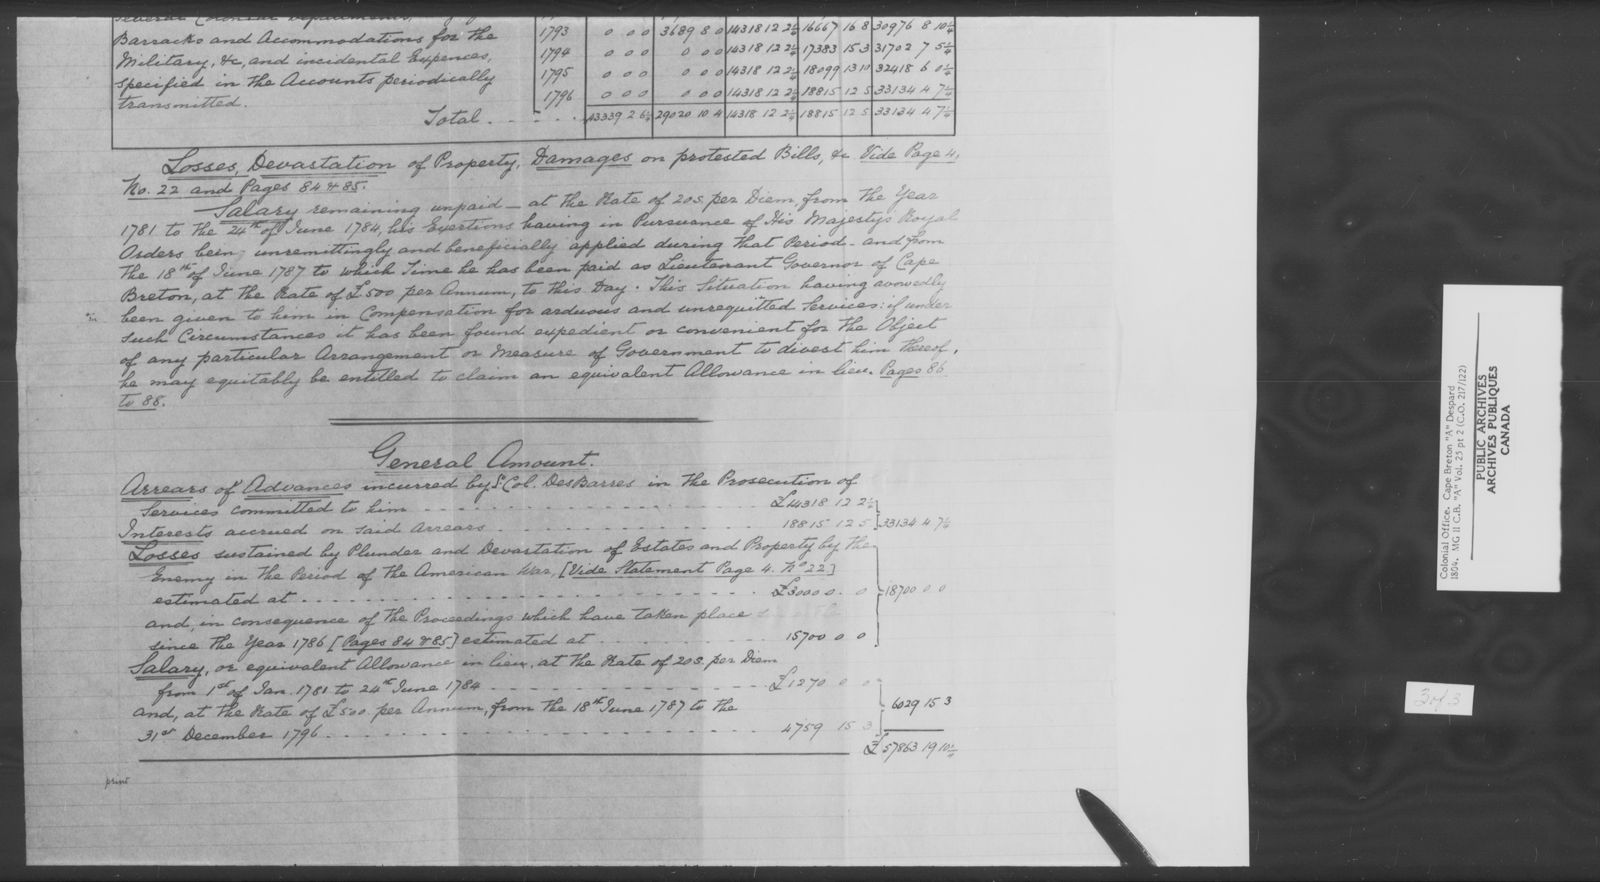 several Colonial Departments,
Barracks and Accommodations for the
Military, &c, and incidental Expences,
specified in the Accounts periodically
transmitted.
1793 0 0 0 3689 8 0 14318 12 2¼ 16667 16 8 30976 8 10¼
1794 0 0 0 0 0 0 14318 12 2¼ 17383 15 3 31702 7 5¼
1795 0 0 0 0 0 0 14318 12 2¼ 18099 13 10 32418 6 0¼
1796 0 0 0 0 0 0 14318 12 2¼ 18815 12 5 33134 4 7¼
Total . - - - . 43339 2 6¼ 29020 10 4 14318 12 2¼ 18815 12 5 33134 4 7¼
Losses, Devastation of Property, Damages on protested Bills, &c Vide Page 4,
No. 22 and Pages 84 & 85.
Salary remaining unpaid — at the Rate of 20s. per Diem, from the Year
1781 to the 24th of June 1784, his Exertions having in Pursuance of His Majesty's Royal
Orders been unremittingly and beneficially applied during that Period - and from
the 18th of June 1787 to which Time he has been paid as Lieutenant Governor of Cape
Breton, at the Rate of £500 per Annum, to this Day. This Situation having avowedly
been given to him in Compensation for arduous and unrequitted Services: if under
such Circumstances it has been found expedient or convenient for the Object
of any particular Arrangement or Measure of Government to divest him thereof,
he may equitably be entitled to claim an equivalent Allowance in lieu. Pages 86
to 88.
General Amount.
Arrears of Advances incurred by Lt. Col. DesBarres in the Prosecution of
Services committed to him - - - - £14318 12 2¼
Interests accrued on said Arrears - - - - 18815 12 5 33134 4 7¼
Losses sustained by Plunder and Devastation of Estates and Property by the
Enemy in the Period of the American War, [Vide Statement Page 4. No 22]
estimated at - - - - £3000 0 0 18700 0 0
and, in consequence of the Proceedings which have taken place
since the Year 1786 [Pages 84 & 85] estimated at - - - - 15700 0 0
Salary, or equivalent Allowance in lieu, at the Rate of 20s. per Diem
from 1st of Jan. 1781 to 24th June 1784 - - - - £1270 0 0
6029 15 3
and, at the Rate of £500 per Annum, from the 18th June 1787 to the
31st December 1796 - - - - 4759 15 3
£57863 19 10¼
print
Colonial Office. Cape Breton "A" Despard
1804. MG 11 C.B. "A" Vol. 25 pt 2 (C.O. 217/122)
PUBLIC ARCHIVES
ARCHIVES PUBLIQUES
CANADA
3 of 3